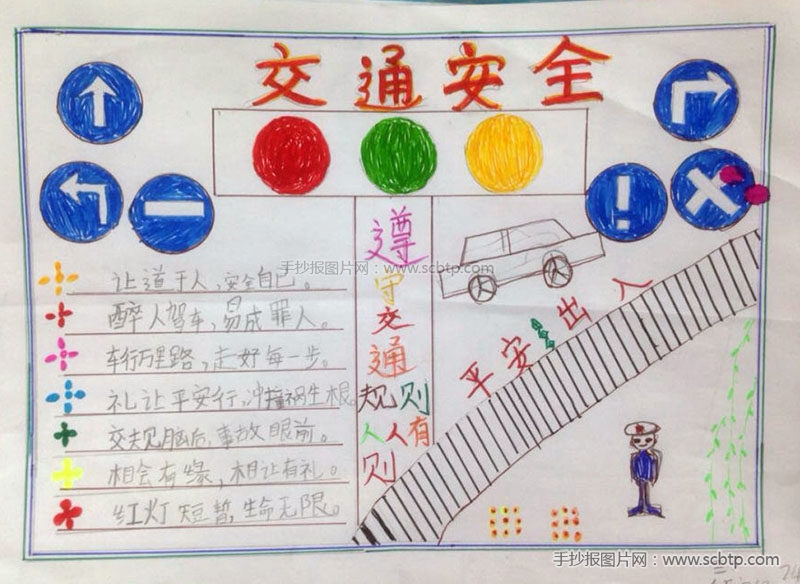 交通安全
遵守交通规则人人有则
手抄报图片网:www.scbtp.com
平安出入
让道于人,安全自己。
醉人驾车,易成罪人。
车行万里路,走好每一步。
礼让平安行,冲撞祸生根。
交规脑后,事故眼前。
相会有缘,相让有礼。
红灯短暂,生命无限。
手抄报图片网:www.scbtp.com